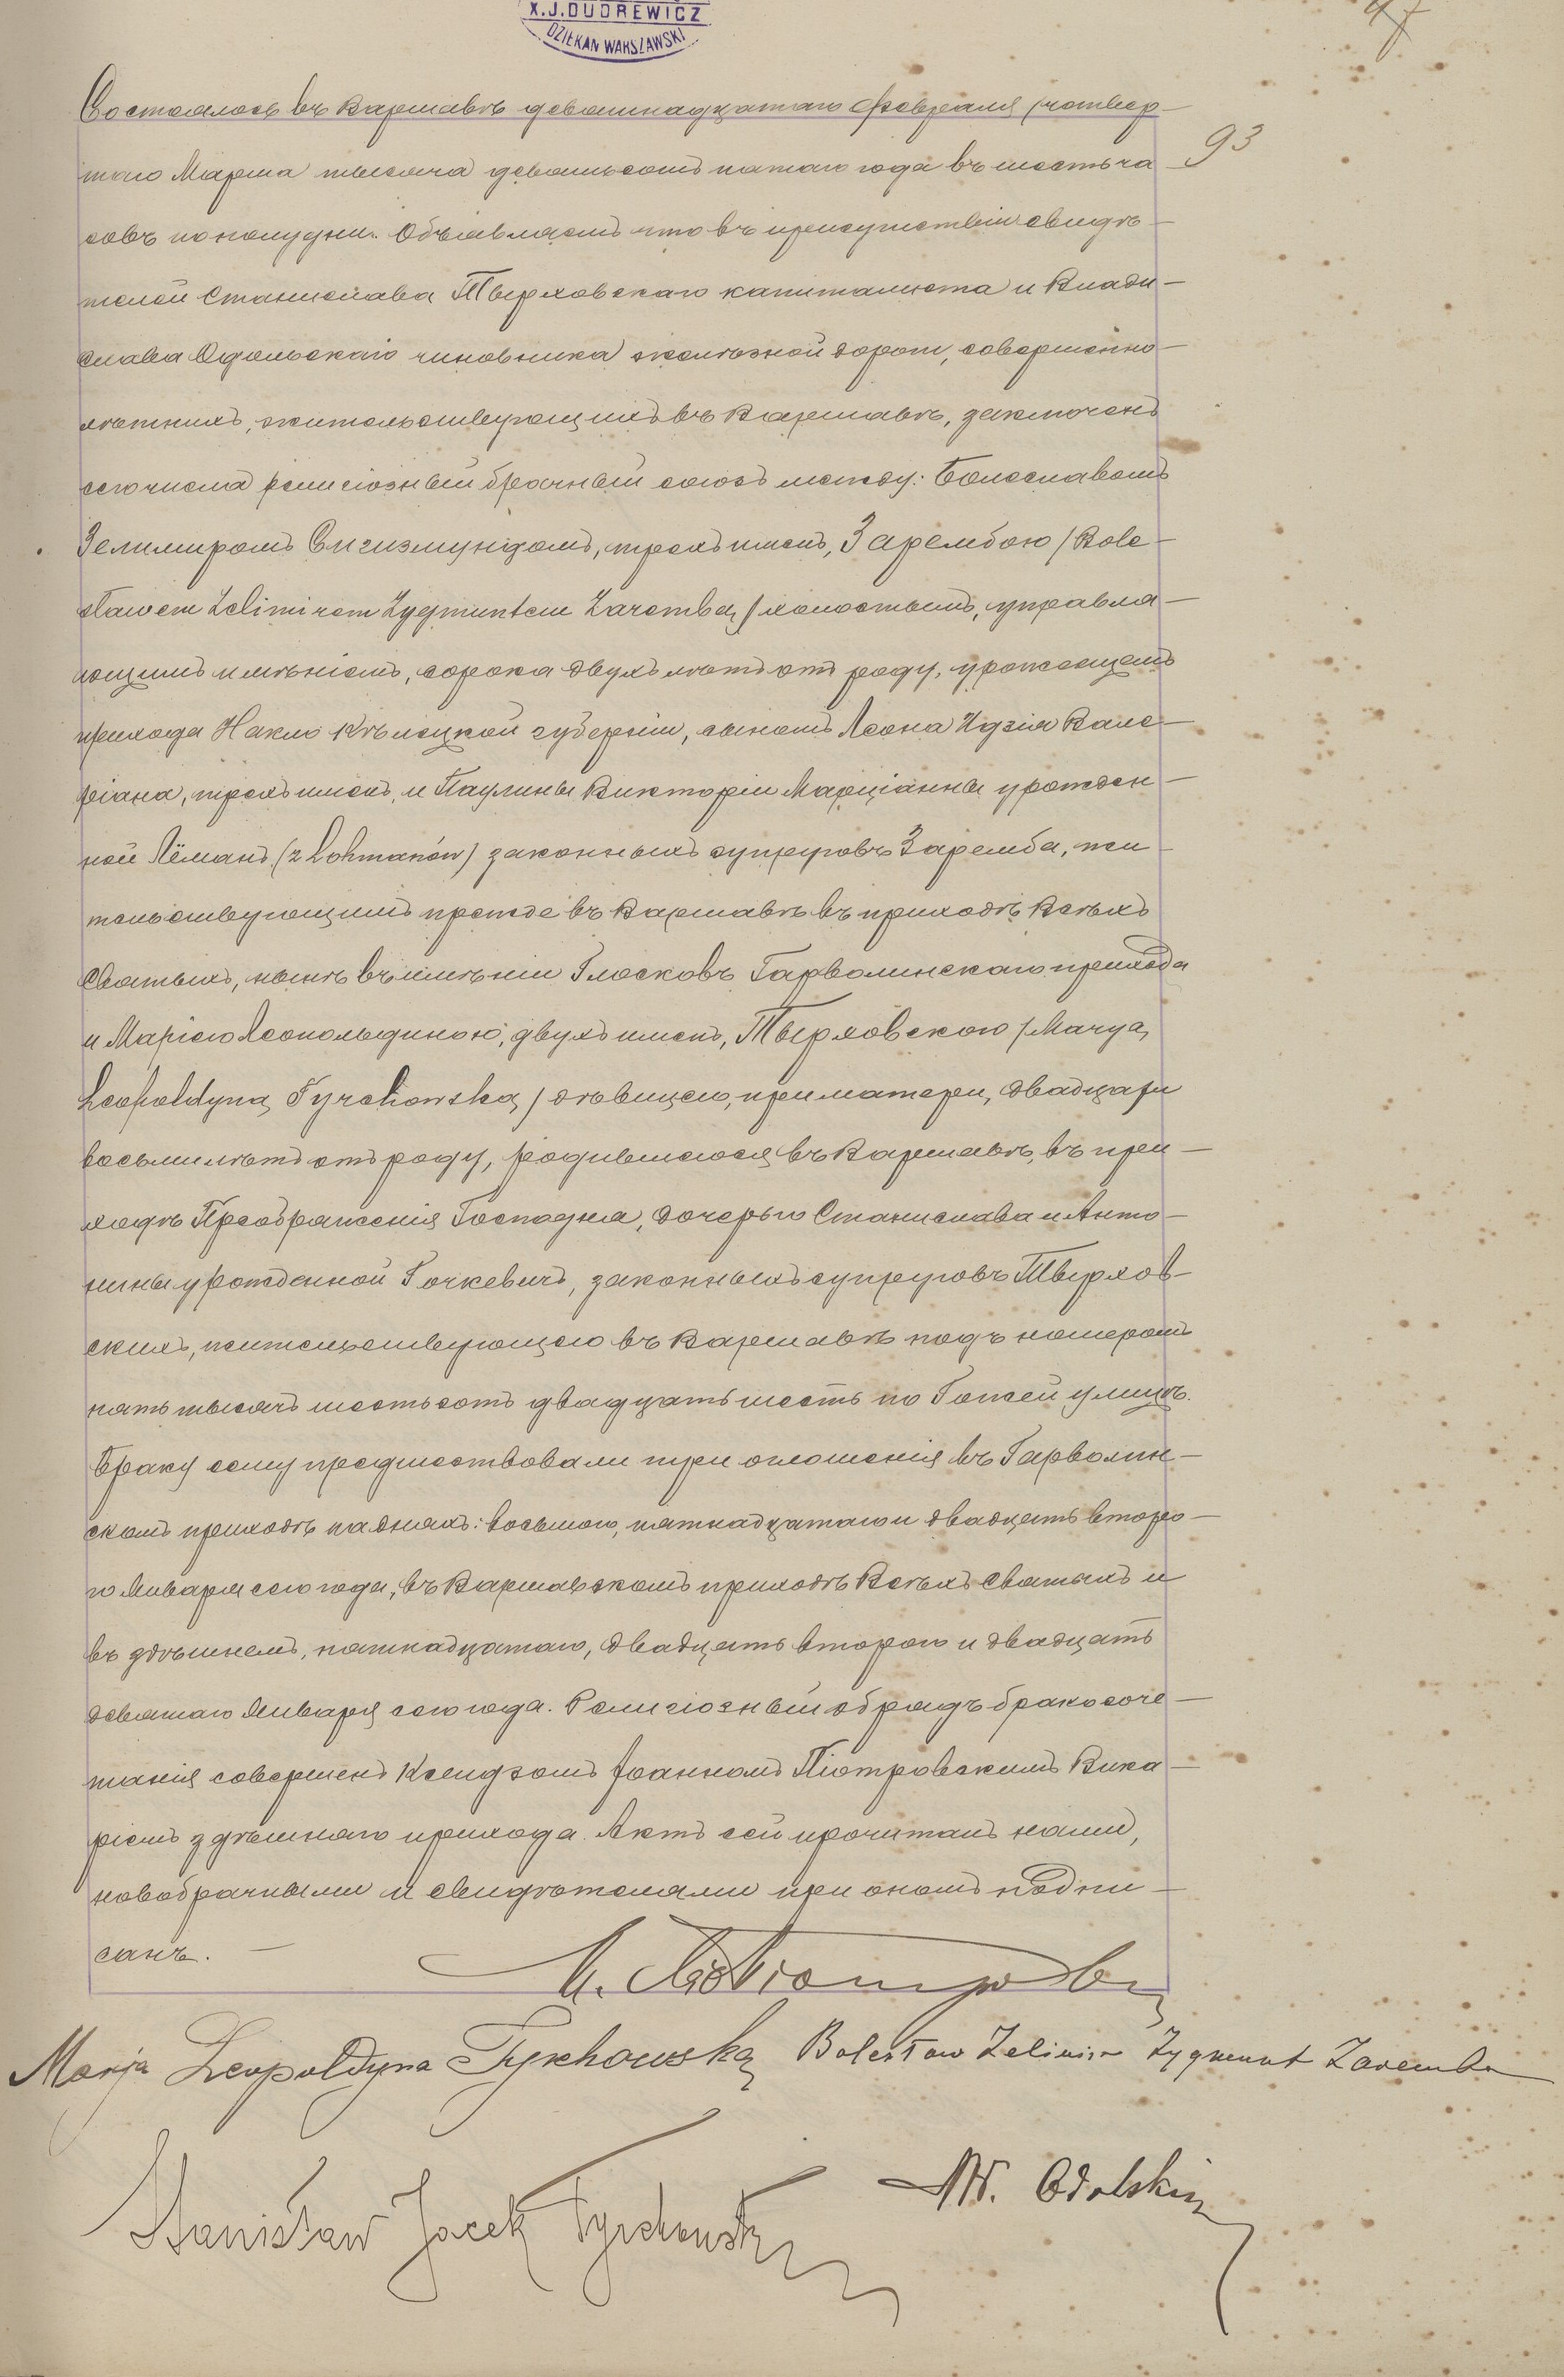 X.J.DUDREWICZ
DZIEKAN WARSZAWSKI
47
93
Состоялось въ Варшавѣ девятнадцатаго Февраля /четвер-
таго Марта тысяча девятьсотъ пятаго года въ шесть ча-
совъ по полудни. Объявляемъ что въ присутствіи свидѣ-
телей Станислава Тырховскаго капиталиста и Влади-
слава Одольскаго чиновника желѣзной дороги, совершенно-
лѣтнихъ, жительствующихъ въ Варшавѣ, заключенъ
сего числа религіозный брачный союзъ между: Болеславомъ
Зелимиромъ Сигизмундомъ, трехъ именъ, Зарембою /Bole-
sławem Zelimirem Zygmuntem Zarembą/ холостымъ, управля-
ющимъ имѣніемъ, сорока двухъ лѣтъ отъ роду, уроженцемъ
прихода Накло Кѣлецкой губерніи, сыномъ Леона Идзія Вале-
ріана, трехъ именъ, и Паулины Викторіи Марціанны урожден-
ной Лёманъ (z Lohmanów) законныхъ супруговъ Заремба, жи-
тельствующимъ прежде въ Варшавѣ въ приходѣ Всѣхъ
Святыхъ, нынѣ въ имѣніи Глосковъ Гарволинскаго прихода
и Маріею Леопольдиною, двухъ именъ, Тырховскою /Maryą
Leopoldyną Tyrchowską/ дѣвицею, при матери, двадцати
восьми лѣтъ отъ роду, родившеюся въ Варшавѣ, въ при-
ходѣ Преображенія Господня, дочерью Станислава и Анто-
нины урожденной Гочкевичъ, законныхъ супруговъ Тырхов-
скихъ, жительствующею въ Варшавѣ подъ номеромъ
пять тысячъ шестьсотъ двадцать шесть по Гожей улицѣ.
Браку сему предшествовали три оглашенія въ Гарволин-
скомъ приходѣ на дняхъ: восьмого, пятнадцатаго и двадцать второ-
го Января сего года, въ Варшавскомъ приходѣ Всѣхъ Святыхъ и
въ здѣшнемъ, пятнадцатаго, двадцать второго и двадцать
девятаго Января сего года. Религіозный обрядъ бракосоче-
танія совершенъ Ксендзомъ Іоанномъ Піотровскимъ Вика-
ріемъ здѣшняго прихода. Актъ сей прочитанъ нами,
новобрачными и свидѣтелями при ономъ подпи-
санъ.
Marja Leopoldyna Tyrchowska Bolesław Zelimir Zygmunt Zaremba
Stanisław Jacek Tyrchowski
W. Odolski